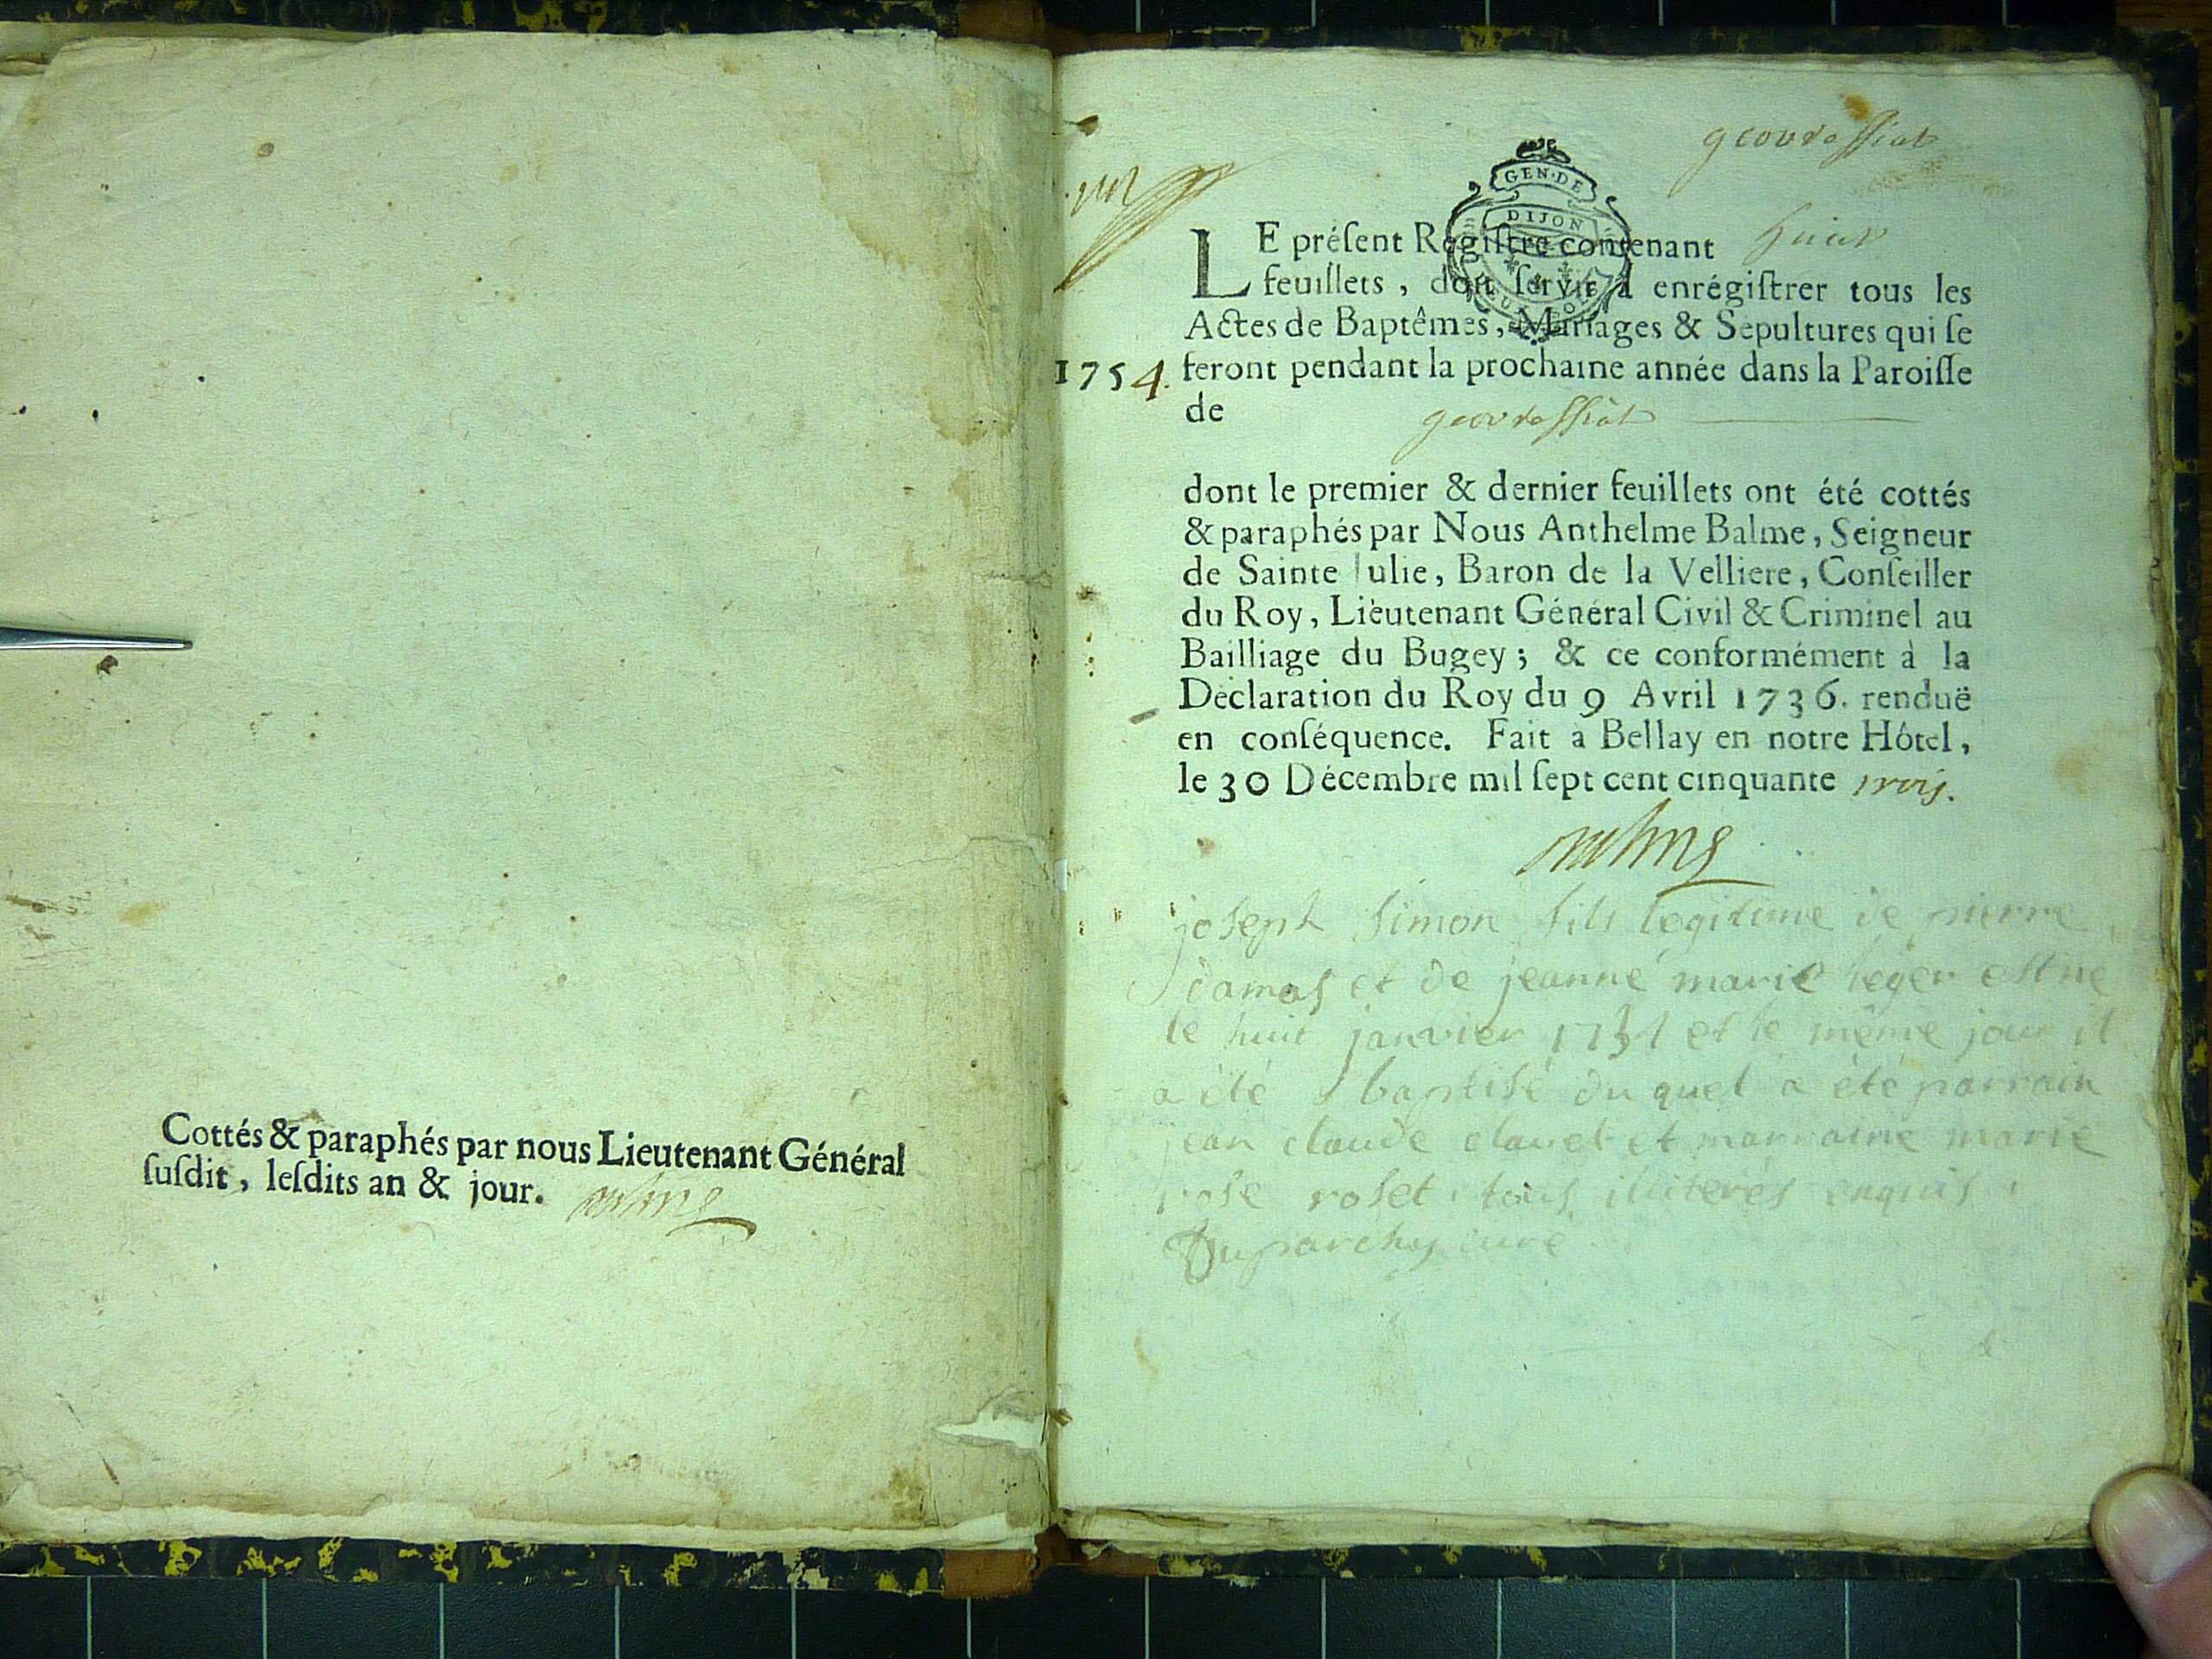 Cottés & paraphés par nous Lieutenant Général
ſuſdit, leſdits an & jour.
geovressiat
GEN·DE
DIJON
LE préſent Regiſtre contenant huict
feuillets, doit ſervir à enrégiſtrer tous les
Actes de Baptêmes, Mariages & Sepultures qui ſe
1754. feront pendant la prochaine année dans la Paroiſſe
de geovressiat
dont le premier & dernier feuillets ont été cottés
& paraphés par Nous Anthelme Balme, Seigneur
de Sainte Julie, Baron de la Velliere, Conſeiller
du Roy, Liéutenant Général Civil & Criminel au
Bailliage du Bugey; & ce conformément à la
Déclaration du Roy du 9 Avril 1736. renduë
en conſéquence. Fait à Bellay en notre Hôtel,
le 30 Décembre mil ſept cent cinquante trois.
joseph simon fils legitime de pierre
damas et de jeanne marie leger est né
le huit janvier et le même jour il
a été baptisé du quel a été parrain
jean claude et marraine marie
rose roset tous illiterés enquis
Duparchy curé